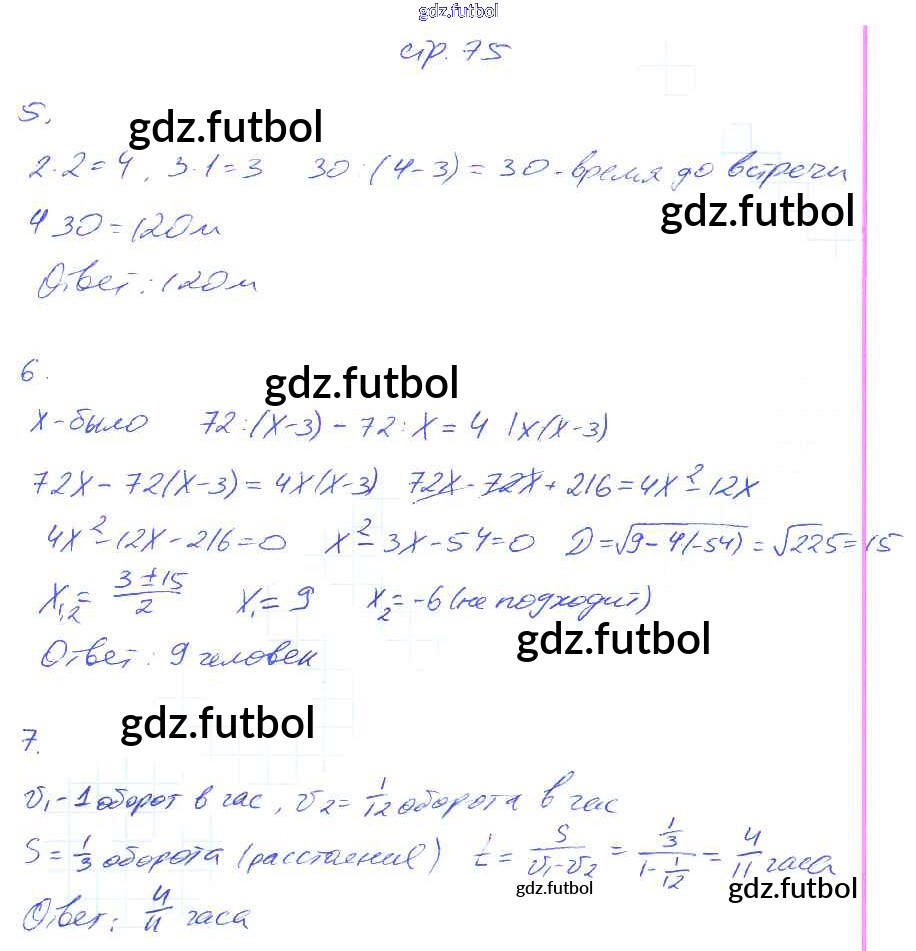 gdz.futbol
стр. 75
5.
gdz.futbol
2·2=4, 3·1=3 30:(4-3)=30-время до встречи
gdz.futbol
4 30=120м
Ответ: 120м
6.
gdz.futbol
X-было 72:(X-3)-72:X=4 |x(X-3)
72X-72(X-3)=4X(X-3) 72X-72X+216=4X²-12X
4X²-12X-216=0 X²-3X-54=0 D=√(9-4(-54))=√225=15
X₁,₂=(3±15)/2 X₁=9 X₂=-6(не подходит)
gdz.futbol
Ответ: 9 человек
gdz.futbol
7.
v₁-1 оборот в час, v₂=1/12 оборота в час
S=1/3 оборота (расстояние) t=S/(v₁-v₂)=(1/3)/(1-1/12)=4/11 часа
gdz.futbol gdz.futbol
Ответ: 4/11 часа